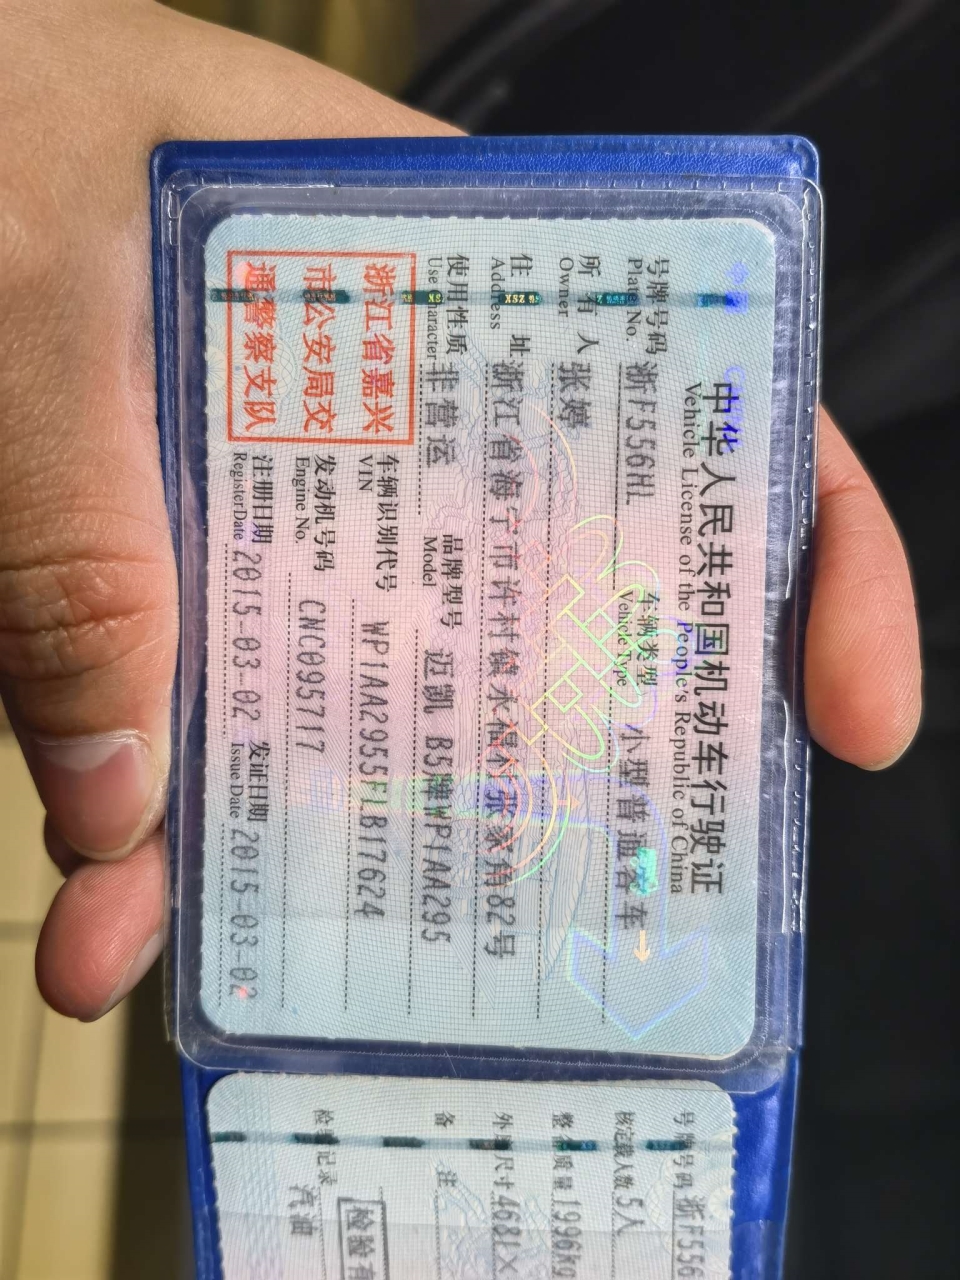 中华人民共和国机动车行驶证
Vehicle License of the People's Republic of China
号牌号码 浙F556HL 车辆类型 小型普通客车
Plate No. Vehicle Type
所有人 张婷
Owner
住址 浙江省海宁市许村镇永福村张家角82号
Address
使用性质 非营运 品牌型号 迈凯 B5牌WP1AA295
Use Character Model
浙江省嘉兴
市公安局交
通警察支队
车辆识别代号 WP1AA2955FLB17624
VIN
发动机号码 CNC095717
Engine No.
注册日期 2015-03-02 发证日期 2015-03-02
Register Date Issue Date
号牌号码 浙F556
核定载人数 5人
整备质量 1996kg
外廓尺寸 4681×
备注
检验记录
检验有
汽油